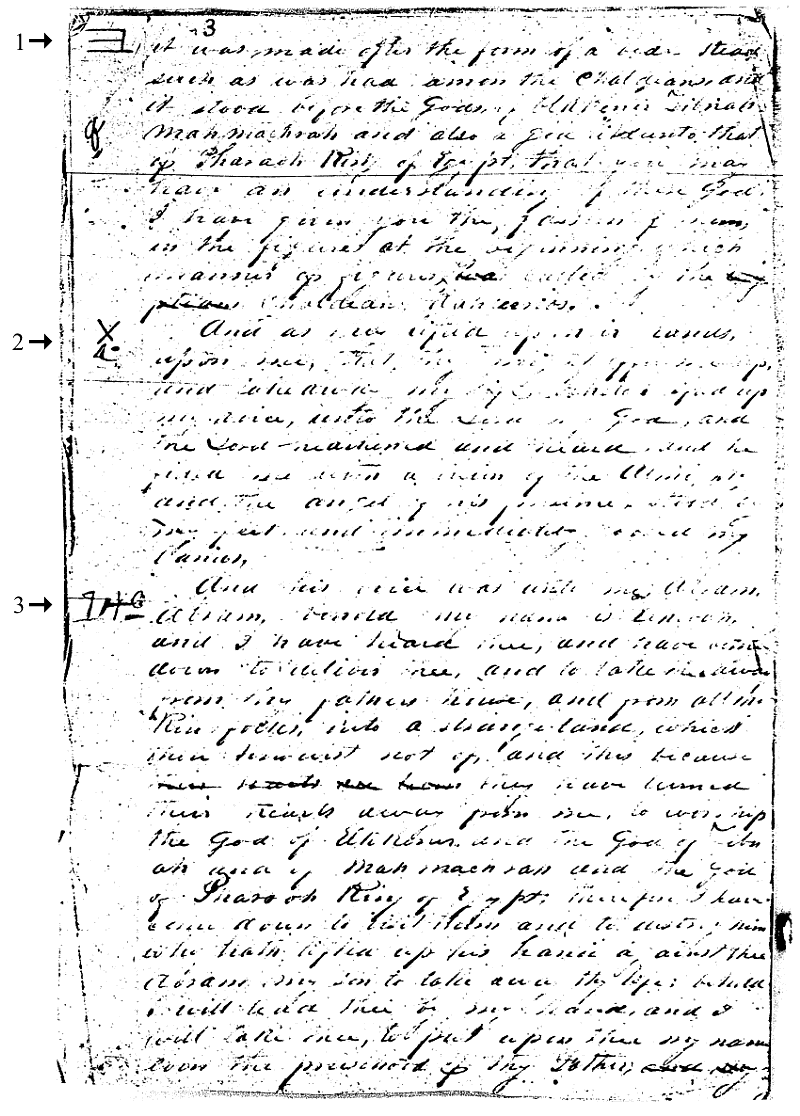 3
1→ it was made after the form of a bedstead
such as was had among the Chaldeans and
it stood before the Gods of Elkkener Zibnah
Mahmachrah and also a God like unto that
of Pharaoh King of Egypt that you may
have an understanding of these Gods
I have given you the fassion of them
in the figures at the beginning which
manner of figures was called by the
Chaldeans Rahleenos.
2→ And as they lifted up their hands,
upon me, that they might offer me up,
and take away my life, behold I lifted up
my voice, unto the Lord my God, and
the Lord hearkened and heard, and he
filled me with a vision of the Almighty
and the angel of his presence stood by
my feet and immediately loosed my
bands,
3→ And his voice was unto me, Abram,
Abram, behold my name is Jehovah,
and I have heard thee, and have come
down to deliver thee, and to take thee away
from thy fathers house, and from all thy
Kin folks, into a strange land, which
thou knowest not of, and this because
they have turned
their hearts away from me, to worship
the God of Elkkener and the God of Zibn
ah and of Mahmachrah and the God
of Pharaoh King of Egypt; therefore I have
come down to visit them and to destroy him
who hath lifted up his hand against thee
Abram my son to take away thy life: behold
I will lead thee by my hand, and I
will take thee, to put upon thee my name
even the priesthood of thy Father,